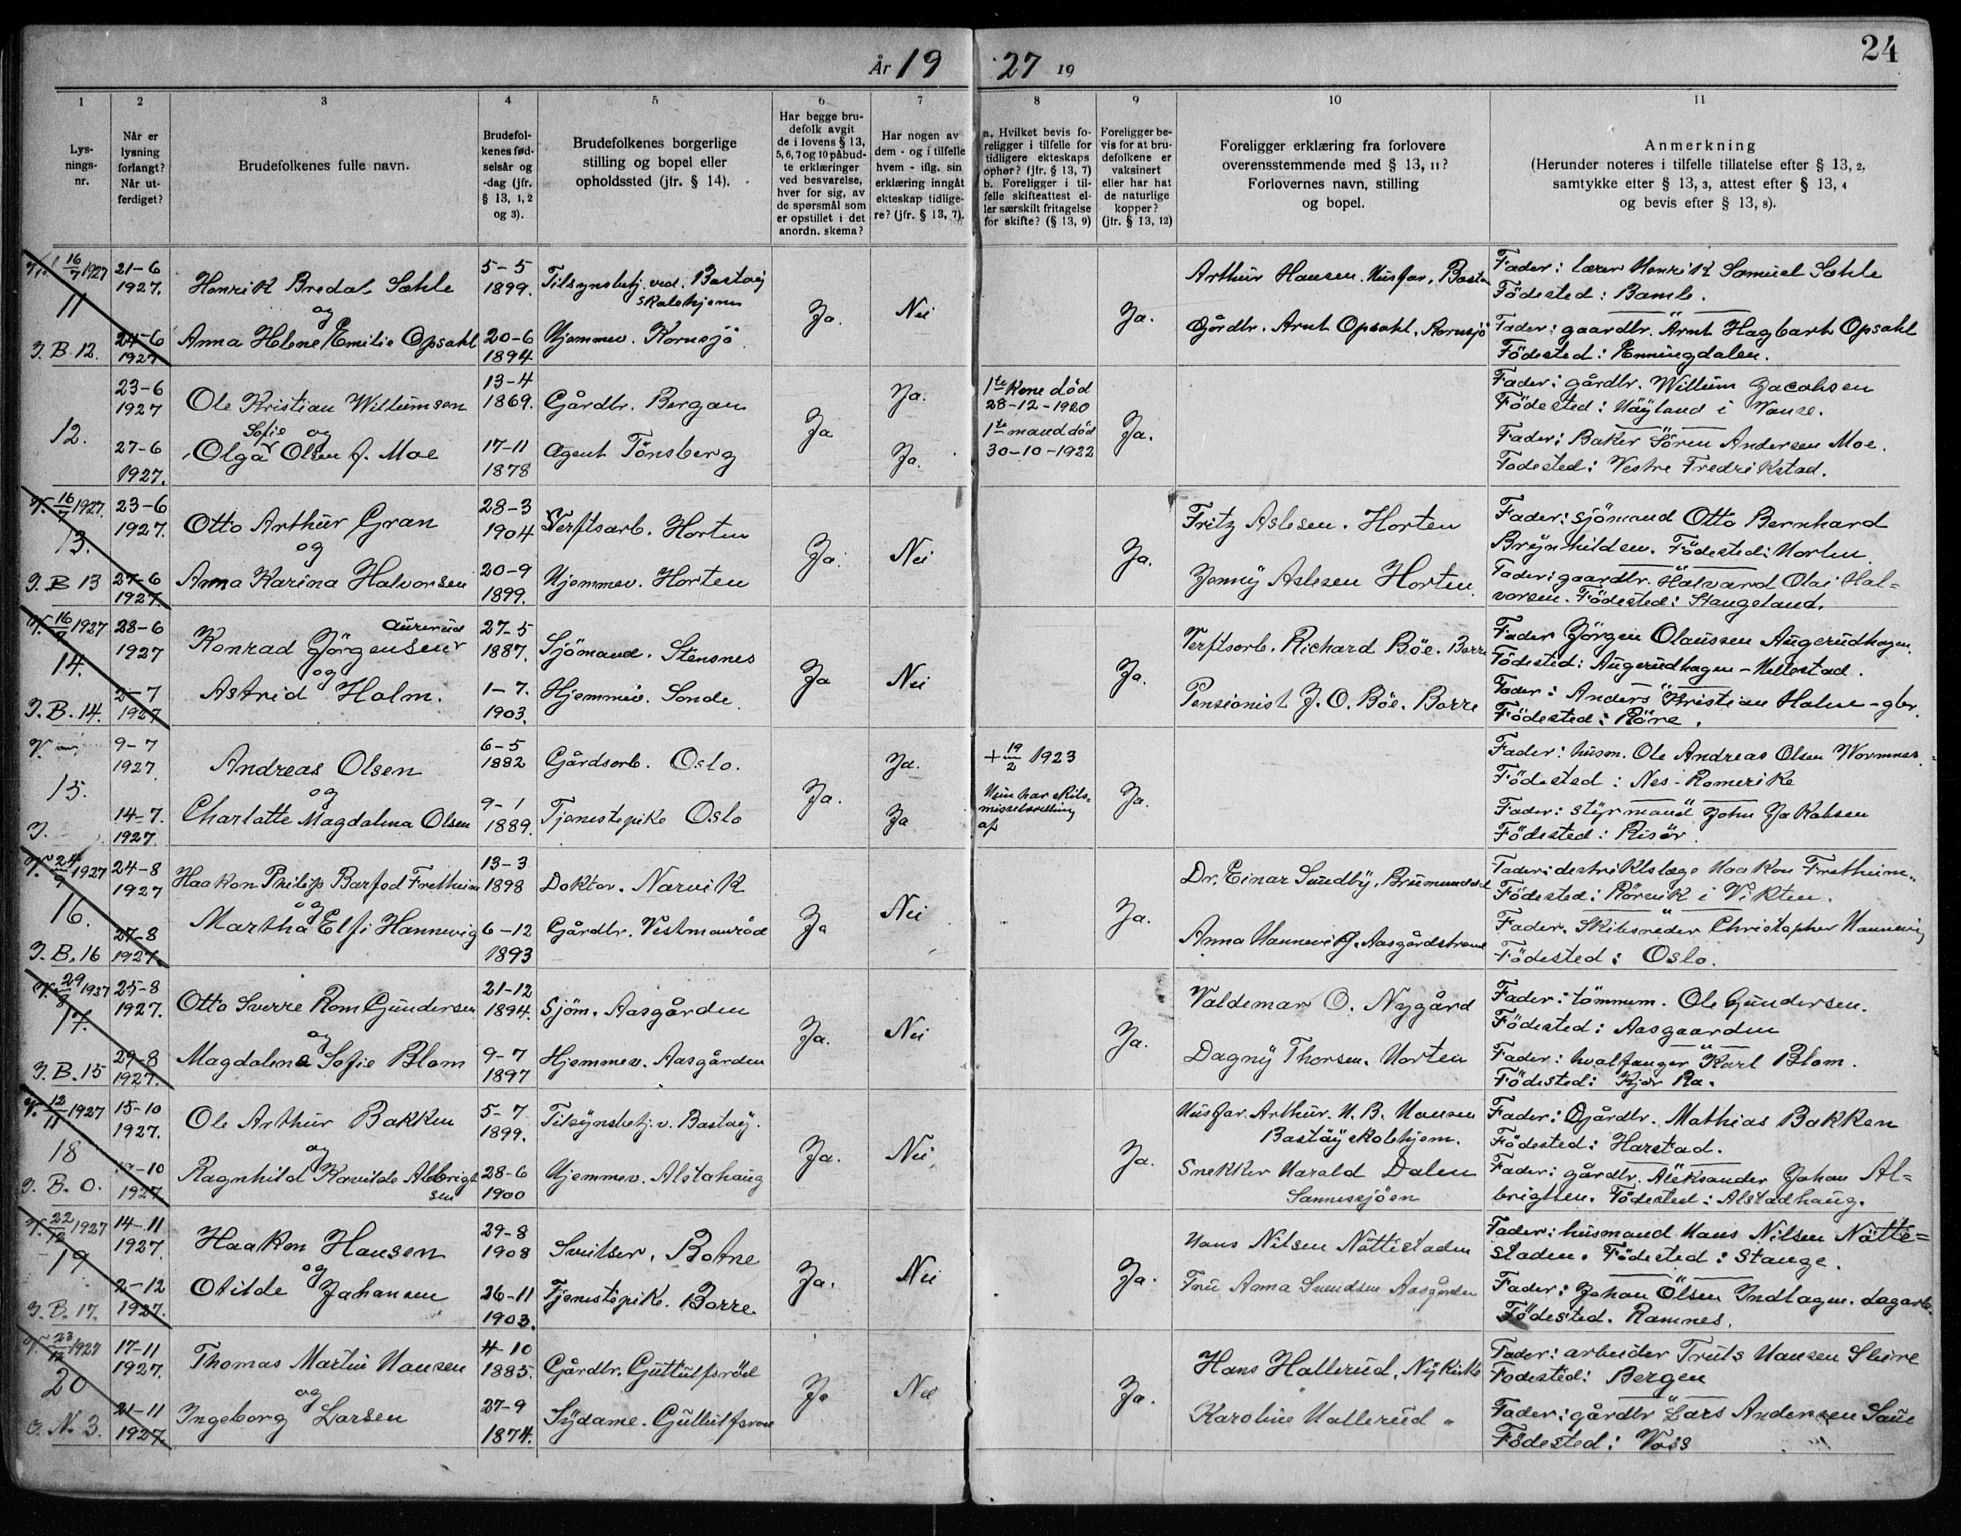 År 1927 19
24
1
2
3
4
5
6
7
8
9
10
11
Lys-
nings-
nr.
Når er
lysning
forlangt?
Når ut-
ferdiget?
Brudefolkenes fulle navn.
Brudefol-
kenes fød-
selsår og
-dag (jfr.
§ 13, 1, 2
og 3).
Brudefolkenes borgerlige
stilling og bopel eller
opholdssted (jfr. § 14).
Har begge bru-
defolk avgit
de i lovens § 13,
5, 6, 7 og 10 påbud-
te erklæringer
ved besvarelse,
hver for sig, av
de spørsmål som
er opstillet i det
anordn. skema?
Har nogen av
dem - og i tilfelle
hvem - iflg. sin
erklæring inngått
ekteskap tidlige-
re? (jfr. § 13, 7).
a. Hvilket bevis fo-
religger i tilfelle for
tidligere ekteskaps
ophør? (jfr. § 13, 7)
b. Foreligger i til-
felle skifteattest el-
ler særskilt fritagelse
for skifte? (§ 13, 9)
Foreligger be-
vis for at bru-
defolkene er
vaksinert
eller har hat
de naturlige
kopper?
(jfr. § 13, 12)
Foreligger erklæring fra forlovere
overensstemmende med § 13, 11?
Forlovernes navn, stilling
og bopel.
Anmerkning
(Herunder noteres i tilfelle tillatelse efter § 13, 2,
samtykke efter § 13, 3, attest efter § 13, 4
og bevis efter § 13, 8).
16/7 1927
11
I. B. 12.
21-6
1927.
24-6
1927
Henrik Bredal Sahle
og
Anna Helene Emilie Opsahl
5-5
1899.
20-6
1894
Tilsynsbetj. ved. Bastøy
skolehjem
Hjemmev. Kornsjö.
Ja.
Nei
Ja.
Arthur Hansen. Husfar. Bastø
Gårdbr. Arnt Opsahl. Kornsjö
Fader: lærer Henrik Samuel Sahle
Födested: Bamle.
Fader: gaardbr. Arnt Hagbart Opsahl
Födested: Enningdalen.
12.
23-6
1927
27-6
1927.
Ole Kristian Willumsen
og
Sofie
Olga Olsen f. Moe
13-4
1869.
17-11
1878
Gårdbr. Bergan
Agent Tönsberg
Ja
Ja.
Ja.
1ste Kone död
28-12-1920
1ste mand död
30-10-1922
Ja.
Fader: gårdbr. Willum Jacobsen
Födested: Höyland i Vanse.
Fader: Baker Sören Andersen Moe.
Fodested: Vestre Fredrikstad.
V. 16/7 1927.
13.
I. B 13
23-6
1927.
27-6
1927.
Otto Arthur Gran
og
Anna Karina Halvorsen
28-3
1904
20-9
1899.
Verftsarb. Horten
Hjemmev. Horten
Ja.
Nei
Ja.
Fritz Aslesen. Horten
Jenny Aslesen Horten.
Fader: sjömand Otto Bernhard
Brynhildsen. Födested: Horten
Fader: gaardbr. Halvard Olai Hal-
vorsen. Födested: Stangeland.
V. 16/7 1927
14.
I. B. 14.
28-6
1927
2-7
1927
Aurerud
Konrad Jörgensen
og
Astrid Holm.
27-5
1887.
1-7.
1903.
Sjömand. Stensnes
Hjemmev. Sande.
Ja
Nei
Ja.
Verftsarb. Richard Böe. Borre
Pensionist J. O. Böe. Borre
Fader Jörgen Olaussen Augerudhagen.
Födested: Augerudhagen - Hellestad.
Fader: Anders Kristian Holm - gbr.
Födested: Röre.
V.
15.
I.
9-7
1927.
14-7.
1927.
Andreas Olsen
og
Charlotte Magdalena Olsen
6-5
1882
9-1
1889.
Gårdsarb. Oslo.
Tjenestepike Oslo
Ja.
Ja.
Ja
+ 19/2 1923
Hun har skils-
missebevilling
af
Ja.
Fader: husm. Ole Andreas Olsen Wormnes.
Födested: Nes - Romerike
Fader: styrmand John Jakobsen
Födested: Risör.
V. 24/9 1927
16.
I. B. 16
24-8
1927
27-8
1927.
Haakon Philip Barfod Fretheim
og
Martha Elfi Hannevig
13-3
1898
6-12
1893
Doktor. Narvik
Gårdbr. Vestmanröd
Ja
Nei
Ja.
Dr. Einar Sundby, Brumunddal
Anna Hannevig. Aasgårdstrand
Fader: destriktslæge Haakon Fretheim.
Födested: Rörvik i Vikten.
Fader. Skibsreder Christopher Hannevig
Födested: Oslo.
V. 29/8 1927
17.
I. B. 15
25-8
1927.
29-8
1927.
Otto Sverre Rom Gundersen
og
Magdalena Sofie Blom
21-12
1894.
9-7
1897
Sjöm. Aasgården
Hjemmev. Aasgården
Ja.
Nei
Ja.
Valdemar O. Nygård
Dagny Thorsen. Horten
Fader: tömmerm. Ole Gundersen.
Födested: Aasgaarden
Fader: hvalfanger Karl Blom.
Födested: Kjær Ra.
V. 12/11 1927
18
I. B. 0.
15-10
1927.
17-10
1927.
Ole Arthur Bakken
og
Ragnhild Kavilde Albrigt
sen
5-7.
1899.
28-6
1900
Tilsynsbetj. v. Bastøy.
Hjemmev. Alstahaug
Ja.
Nei.
Ja.
Husfar Arthur. H. B. Hansen
Bastöy skolehjem.
Snekker Harald Dalen
Sannessjöen
Fader: Gårdbr. Mathias Bakken
Födested: Harstad.
Fader: gårdbr. Aleksander Johan Al-
brigtsen. Födested: Alstadhaug.
V. 22/12 1927
19
I. B. 17.
14-11
1927.
2-12
1927.
Haakon Hansen
og
Otilde Johansen
29-8
1908
26-11
1903.
Sveitser. Botne
Tjenestepike. Borre
Ja.
Nei
Ja.
Hans Nilsen Nöttestaden
Fru Anna Svendsen Aasgården
Fader: husmand Hans Nilsen Nötte-
staden. Födested: Stange.
Fader: Johan Olsen Indlagen. dagarb.
Födested. Ramnes.
V. 23/12 1927
20
O. N. 3.
17-11
1927.
21-11
1927.
Thomas Martin Hansen
og
Ingeborg Larsen
4-10
1885.
27-9
1874.
Gårdbr. Gullulfsröd
Sydame. Gullulfsröd
Ja
Nei
Ja.
Hans Hallerud. Nykirke
Karoline Hallerud "
Fader: arbeider Truls Hansen Sleire
Fodested: Bergen
Fader: gårdbr Lars Andersen Saue
Födested: Voss